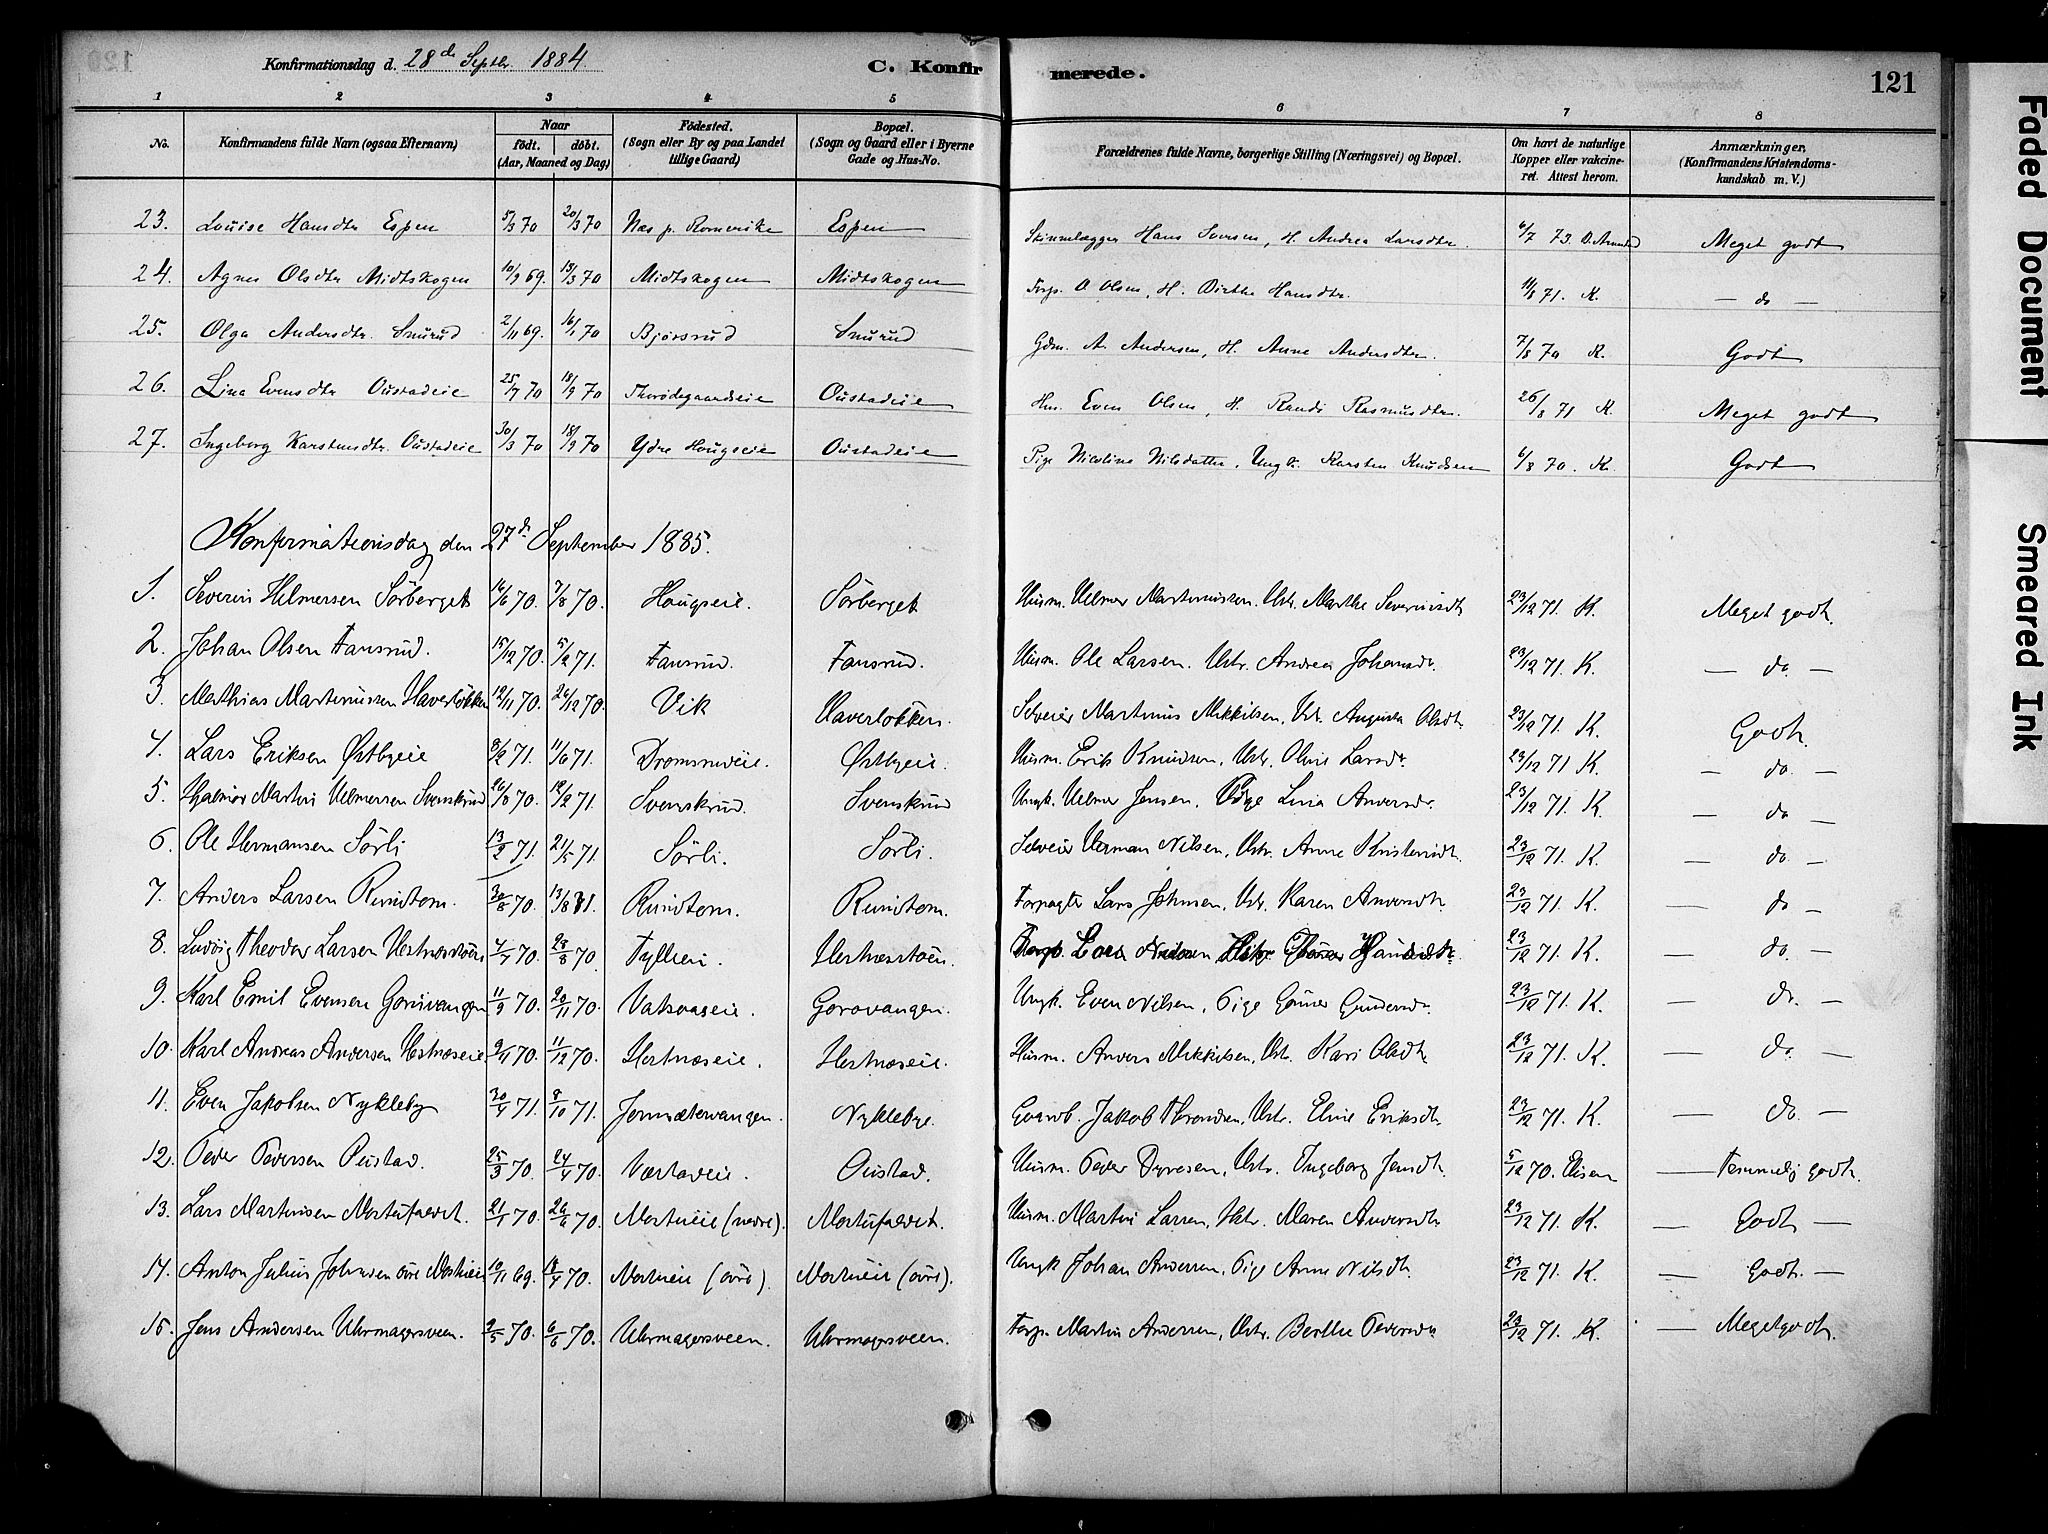 Konfirmationsdag d. 28de Septbr. 1884
C. Konfirmerede.
121
1 2 3 4 5 6 7 8
No.
Konfirmandens fulde Navn (ogsaa Efternavn)
Naar
født. døbt.
(Aar, Maaned og Dag)
Fødested.
(Sogn eller By og paa Landet tillige Gaard)
Bopæl.
(Sogn og Gaard eller i Byerne Gade og Hus-No.
Forældrenes fulde Navne, borgerlige Stilling (Næringsvei) og Bopæl.
Om havt de naturlige Kopper eller vakcineret. Attest herom.
Anmærkninger,
(Konfirmandens Kristendomskundskab m. V.)
23. Louise Hansdtr Espen 5/3 70 20/3 70 Næs p. Romerike Espen Hans Iversen, H. Andrea Larsdtr. 6/7 73 Meget godt
24. Agnes Olsdtr Midtskogen 10/9 69. 13/3 70 Midtskogen Midtskogen Forp. O Olsen, H. Birthe Hansdtr. 11/8 71. K. — do —
25. Olga Andersdtr. Snurud 2/11 69. 16/1 70 Bjørsrud Snurud Gdm. A. Andersen, H. Anne Andersdtr. 7/8 70 K. Godt
26. Lina Evensdtr Oustadeie 25/7 70 18/9 70 Thorødegaardseie Oustadeie Hm. Even Olsen, H. Randi Rasmusdtr. 26/8 71 K. Meget godt
27. Ingeborg Karstensdtr. Oustadeie 30/3 70 18/9 70 Ydre Hougseie Oustadeie Pige Nicoline Nilsdatter, Ungk. Karsten Knudsen 6/8 70. K. Godt
Konfirmationsdag den 27de September 1885.
1. Severin Helmersen Sörberget 16/6 70. 7/8 70. Hougseie. Sörberget Husm. Helmer Martinussen. Hstr. Marthe Severinsdt. 23/12 71. K. Meget godt.
2. Johan Olsen Fansrud. 15/12 70. 5/2 71. Fansrud. Fansrud. Husm. Ole Larsen. Hstr. Andrea Johansdr. 23/12 71. K. — do. —
3. Mathias Martinussen Haverløkken 12/11 70. 26/12 70. Vik Haverløkken. Selveier Martinus Mikkelsen, Hst. Augusta Olsdt. 23/12 71. K. Godt.
4. Lars Eriksen Østbyeie 8/2 71. 11/6 71. Dromsrueie. Østbyeie. Husm. Erik Knudsen, Hstr. Oline Larsdr. 23/12 71 K. — do. —
5. Hjalmar Martin Helmersen Svenskrud 26/8 70. 12/2 71. Svenskrud. Svenskrud Ungk. Helmer Jensen, Pige Lina Andersdr. 23/12 71. K. — do —
6. Ole Hermansen Sörli 13/2 71. 21/5 71. Sörli. Sörli. Selveier Herman Nilsen, Hstr. Anne Kristensdt. 23/12 71. K. — do. —
7. Anders Larsen Rundtom. 30/8 70. 13/8 71. Rundtom. Rundtom. Forpagter Lars Johnsen, Hstr. Karen Andersdt. 23/12 71. K. — do —
8. Ludvig Theodor Larsen 4/7 70. 28/8 70. Fylkesi. Forp. Lars 23/12 71. K. — do. —
9. Karl Emil Evensen Gorovangen 11/9 70. 20/11 70. Vatsvaseie. Gorovangen. Ungk. Even Nilsen, Pige Gunder Gundersdr. 23/12 71. K. — do. —
10. Karl Andreas Andersen Hestnæseie 9/11 70. 11/12 70. Hestnæseie. Hestnæseie. Husm. Anders Mikkelsen, Hst. Kari Olsdt. 23/12 71. K. — do. —
11. Even Jakobsen Nykleby 30/4 71. 8/10 71. Nyklebye. Gaardb. Jakob Throndsen, Hstr. Eline Eriksdt. 23/12 71. K. — do. —
12. Peder Pedersen Oustad. 25/3 70. 24/4 70. Oustad. Husm. Peder Hstr. Ingeborg Jensdt. 5/12 70. — Temmelig godt.
13. Lars Martinsen 21/1 70. 26/6 70. (nedre). Husm. Martin Larsen, Hstr. Maren Andersdt. 23/12 71. K. — Godt —
14. Anton Julius Johnsen øvre 10/11 69. 18/4 70. (øvre) (øvre). Ungk Johan Andersen, Pige Anne Nilsdt. 23/12 71. K. — Godt. —
15. Jens Andersen Uhrmagersveen. 2/5 70. 6/6 70. Uhrmagersveen. Uhrmagersveen. Forp. Martin Andersen, Hstr. Berthe Pedersdr 23/12 71. K. — Meget godt.
Faded Document
Smeared Ink